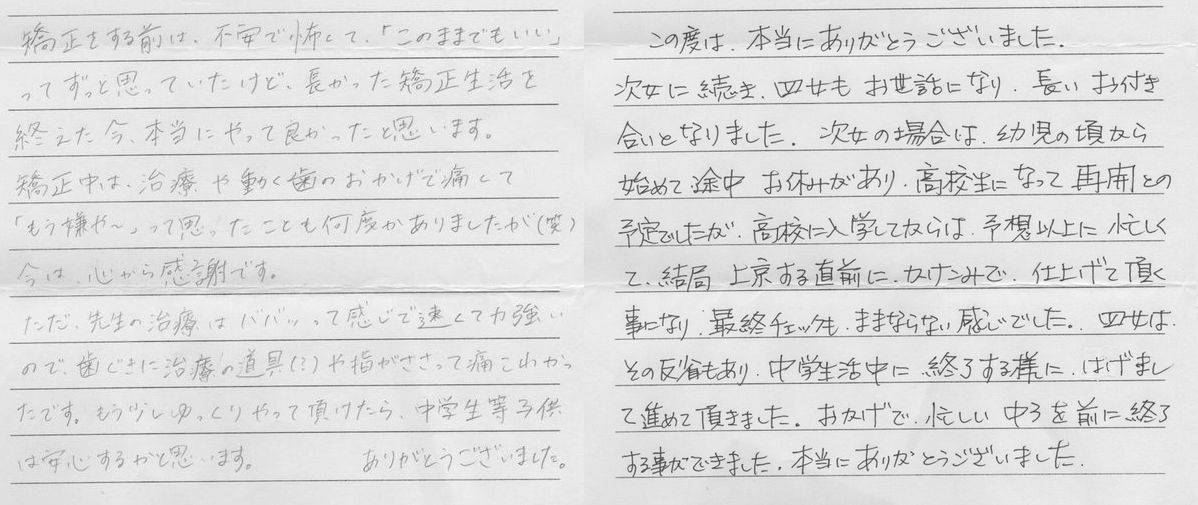 矯正をする前は、不安で怖くて、「このままでもいい」
ってずっと思っていたけど、長かった矯正生活を
終えた今、本当にやって良かったと思います。
矯正中は、治療や動く歯のおかげで痛くて
「もう嫌や〜」って思ったことも何度かありましたが(笑)
今は、心から感謝です。
ただ、先生の治療はババッって感じで速くて力強い
ので、歯ぐきに治療の道具(?)や指がささって痛こわかっ
たです。もう少しゆっくりやって頂けたら、中学生等子供
は安心するかと思います。 ありがとうございました。
この度は、本当にありがとうございました。
次女に続き、四女もお世話になり、長いお付き
合いとなりました。次女の場合は、幼児の頃から
始めて途中お休みがあり、高校生になって再開との
予定でしたが、高校に入学してからは、予想以上に忙しく
て、結局上京する直前に、かけこみで、仕上げて頂く
事になり、最終チェックも、ままならない感じでした。四女は、
その反省もあり、中学生活中に終了する様に、はげまし
て進めて頂きました。おかげで、忙しい中3を前に終了
する事ができました。本当にありがとうございました。